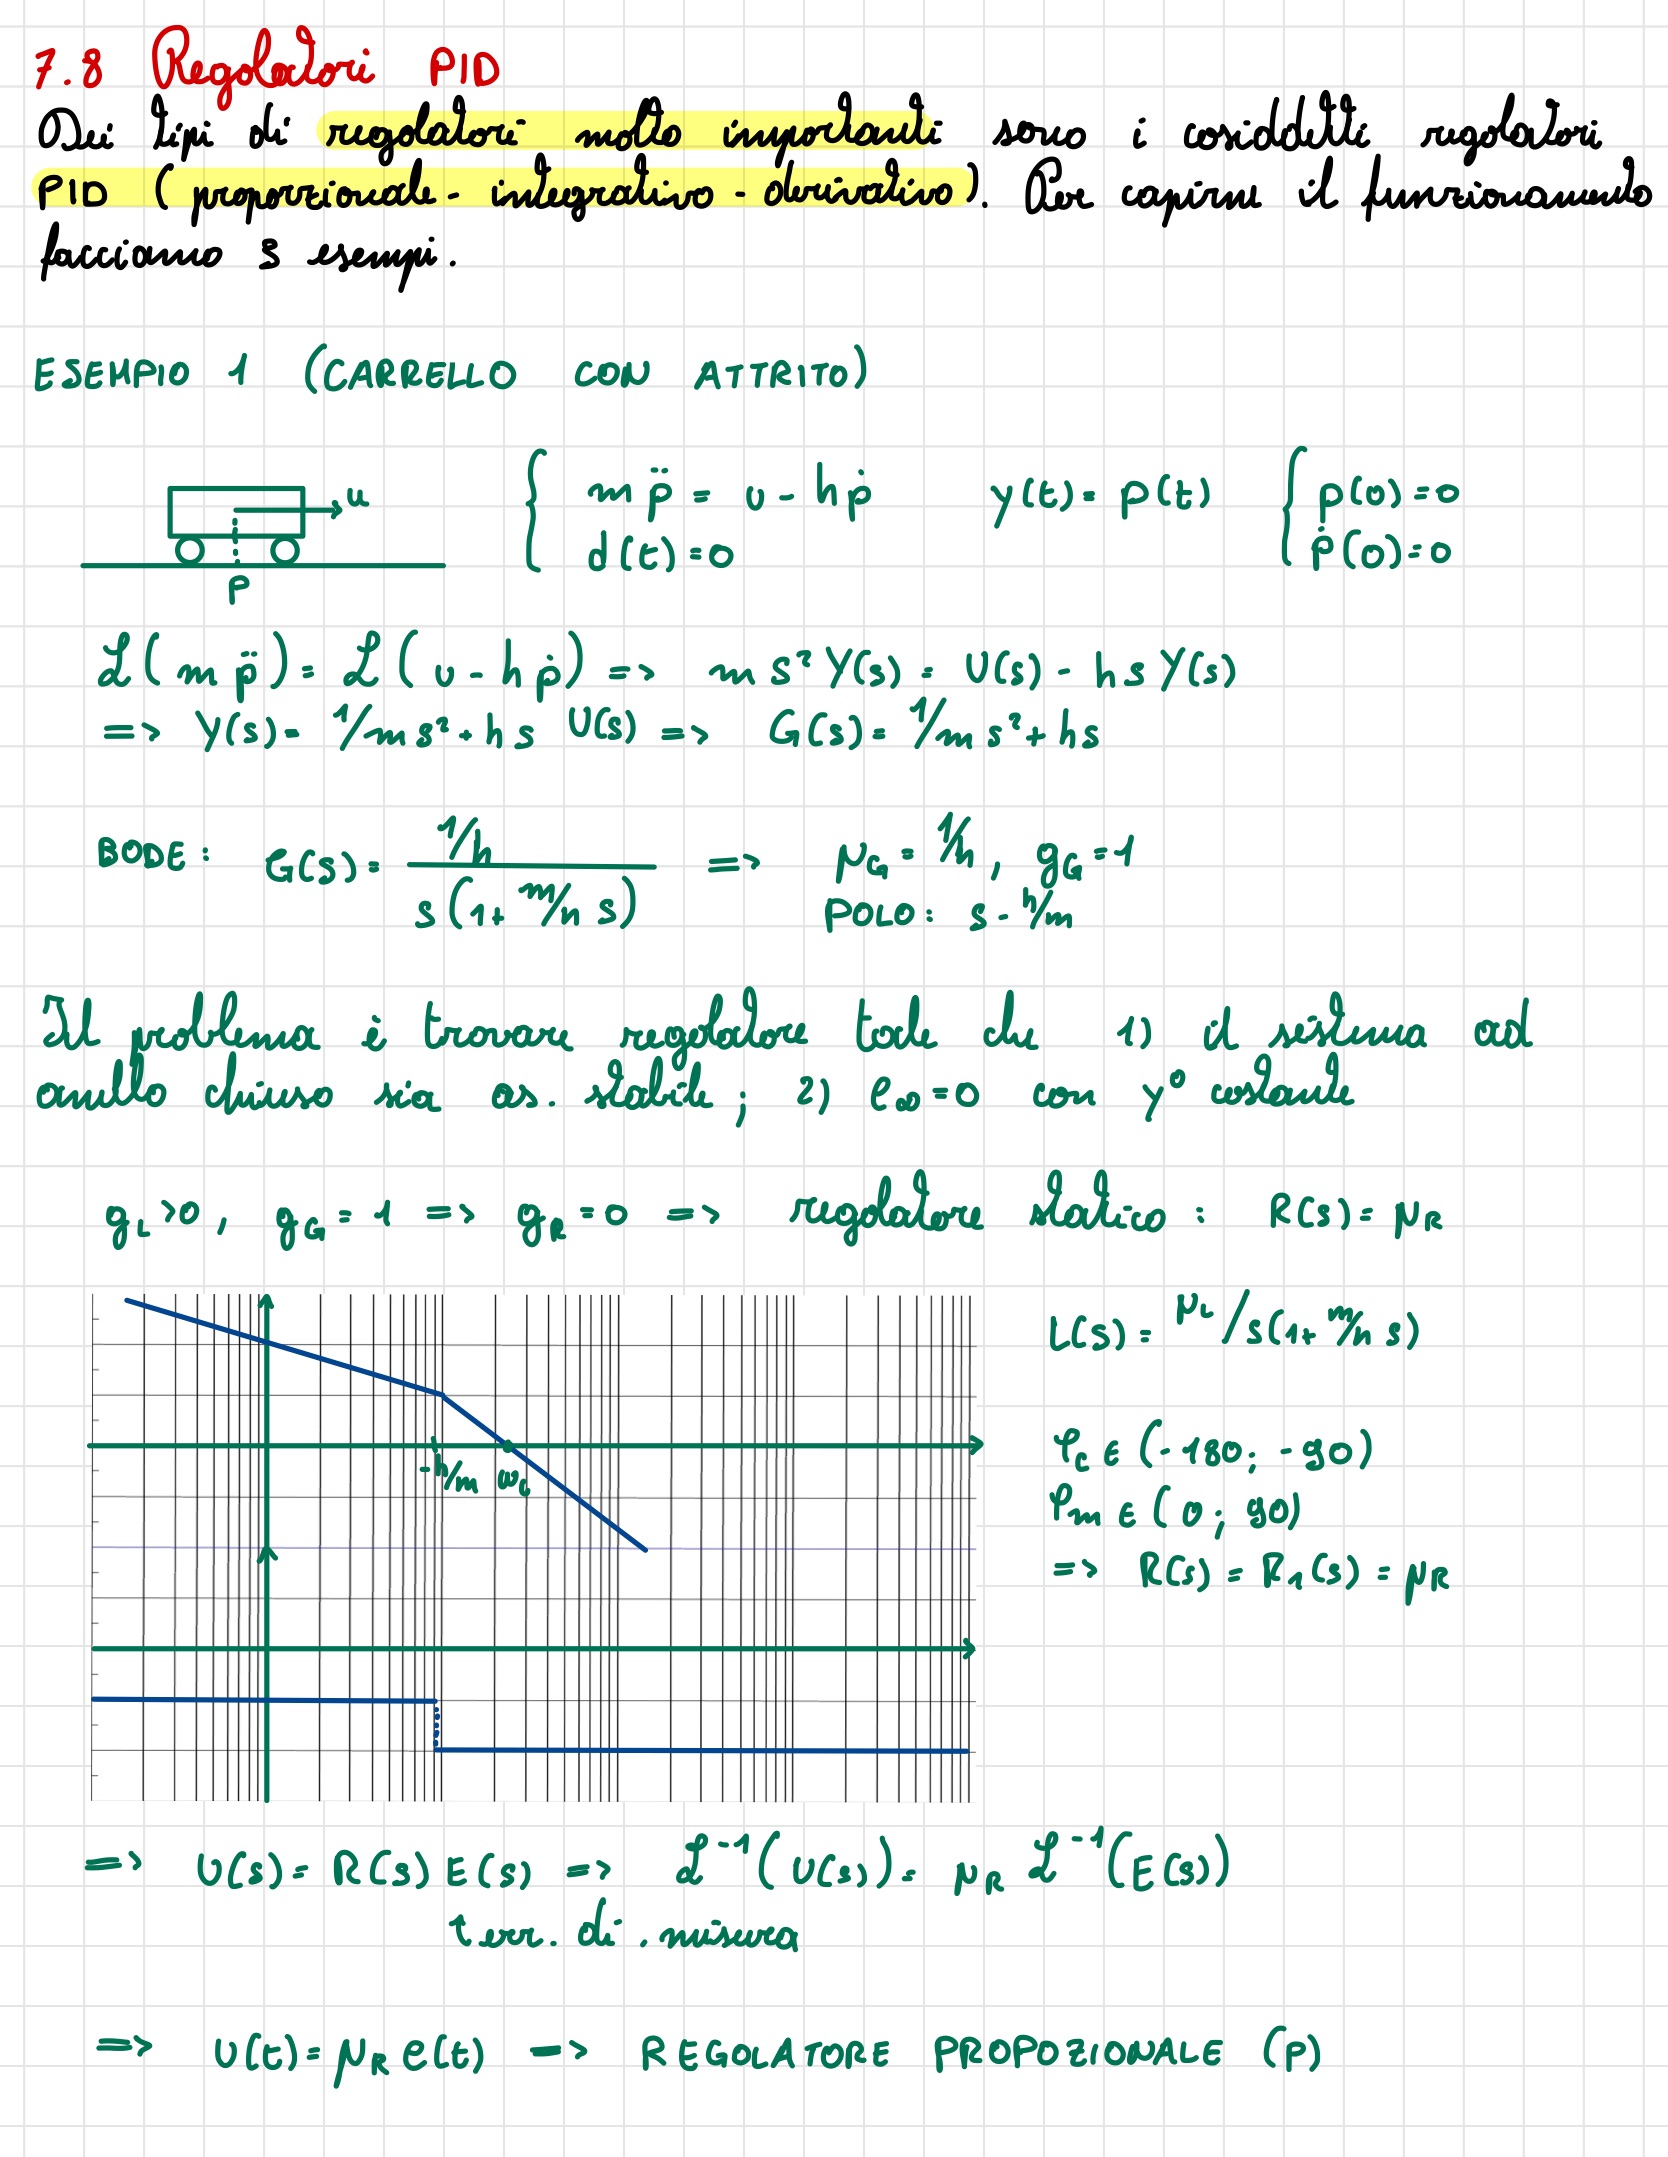 7.8 Regolatori PID
Dei tipi di regolatori molto importanti sono i cosiddetti regolatori
PID (proporzionale - integrativo - derivativo). Per capirne il funzionamento
facciamo 3 esempi.
ESEMPIO 1 (CARRELLO CON ATTRITO)
u
p
{ m p̈ = u - h ṗ
d(t) = 0
y(t) = p(t)
{ p(0) = 0
ṗ(0) = 0
ℒ(m p̈) = ℒ(u - h ṗ) => m s² Y(s) = U(s) - h s Y(s)
=> Y(s) = 1/ms² + hs U(s) => G(s) = 1/ms² + hs
BODE: G(s) = (1/h) / (s(1 + m/h s)) => μ_G = 1/h, g_G = 1
POLO: s - h/m
Il problema è trovare regolatore tale che 1) il sistema ad
anello chiuso sia as. stabile; 2) e∞ = 0 con y⁰ costante
g_L > 0, g_G = 1 => g_R = 0 => regolatore statico: R(s) = μ_R
L(s) = μ_L / s(1 + m/h s)
-h/m ω_c
φ_c ∈ (-180; -90)
φ_m ∈ (0; 90)
=> R(s) = R_1(s) = μ_R
=> U(s) = R(s) E(s) => ℒ⁻¹(U(s)) = μ_R ℒ⁻¹(E(s))
err. di misura
=> U(t) = μ_R e(t) => REGOLATORE PROPOZIONALE (P)